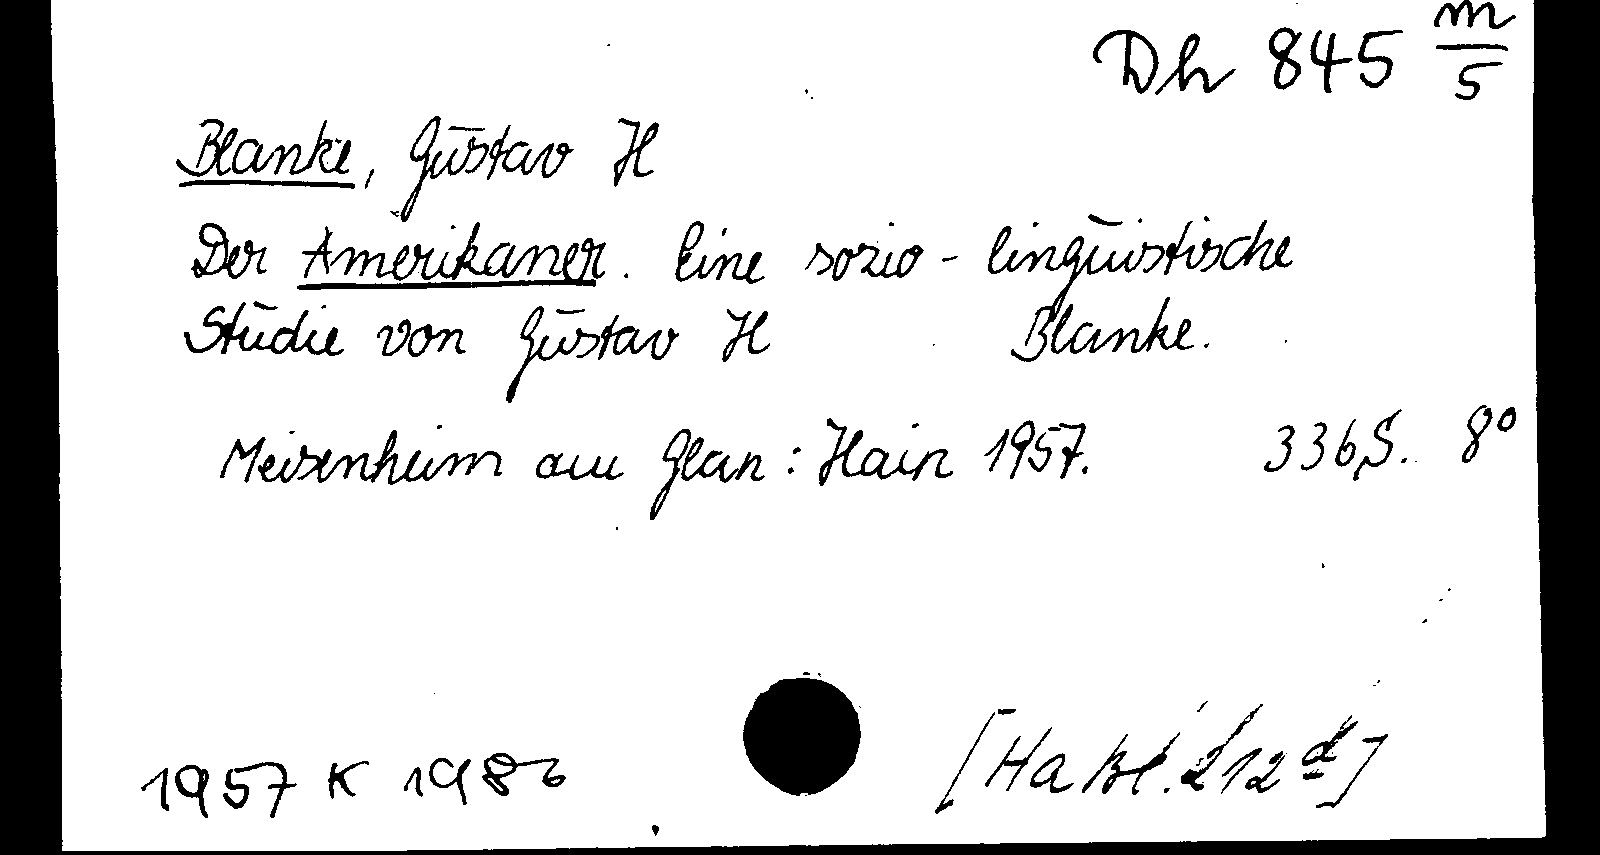 Dh 845 m/5
Blanke, Gustav H
Der Amerikaner. Eine sozio-linguistische
Studie von Gustav H Blanke.
Meisenheim am Glan: Hain 1957. 336 S. 8°
1957 K 1986
[Ha Bl. 212 d]